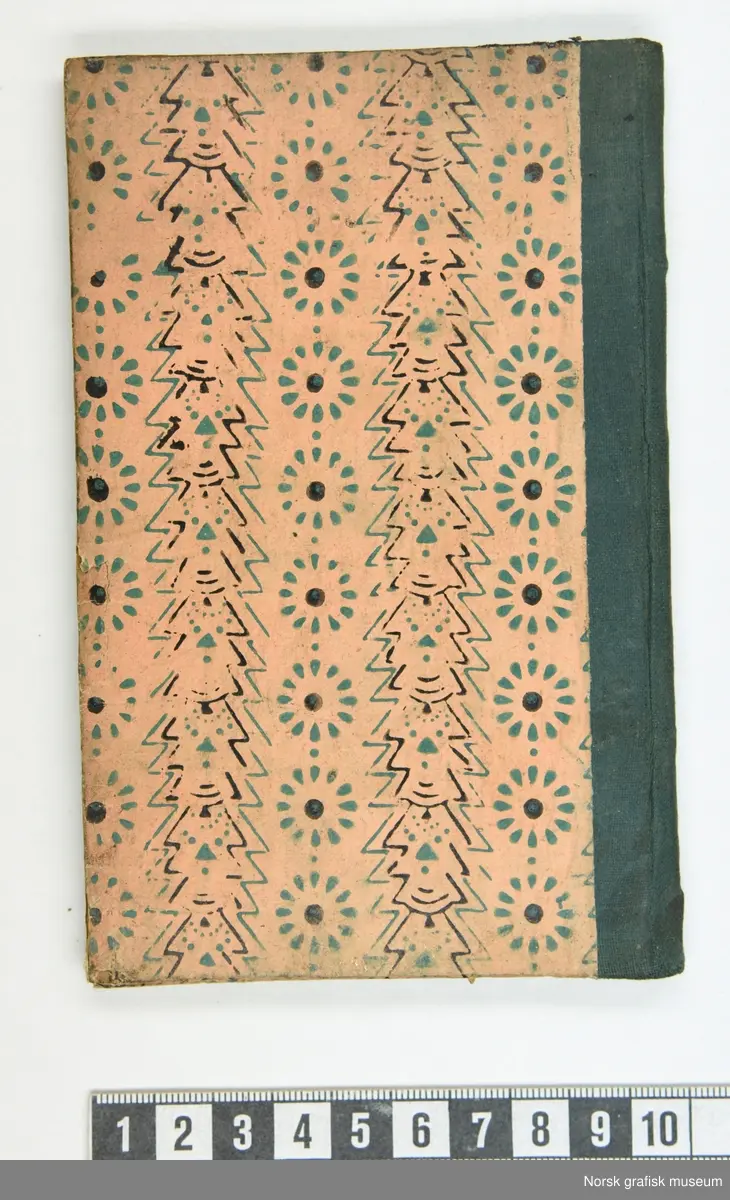 1 2 3 4 5 6 7 8 9 10
Norsk grafisk museum